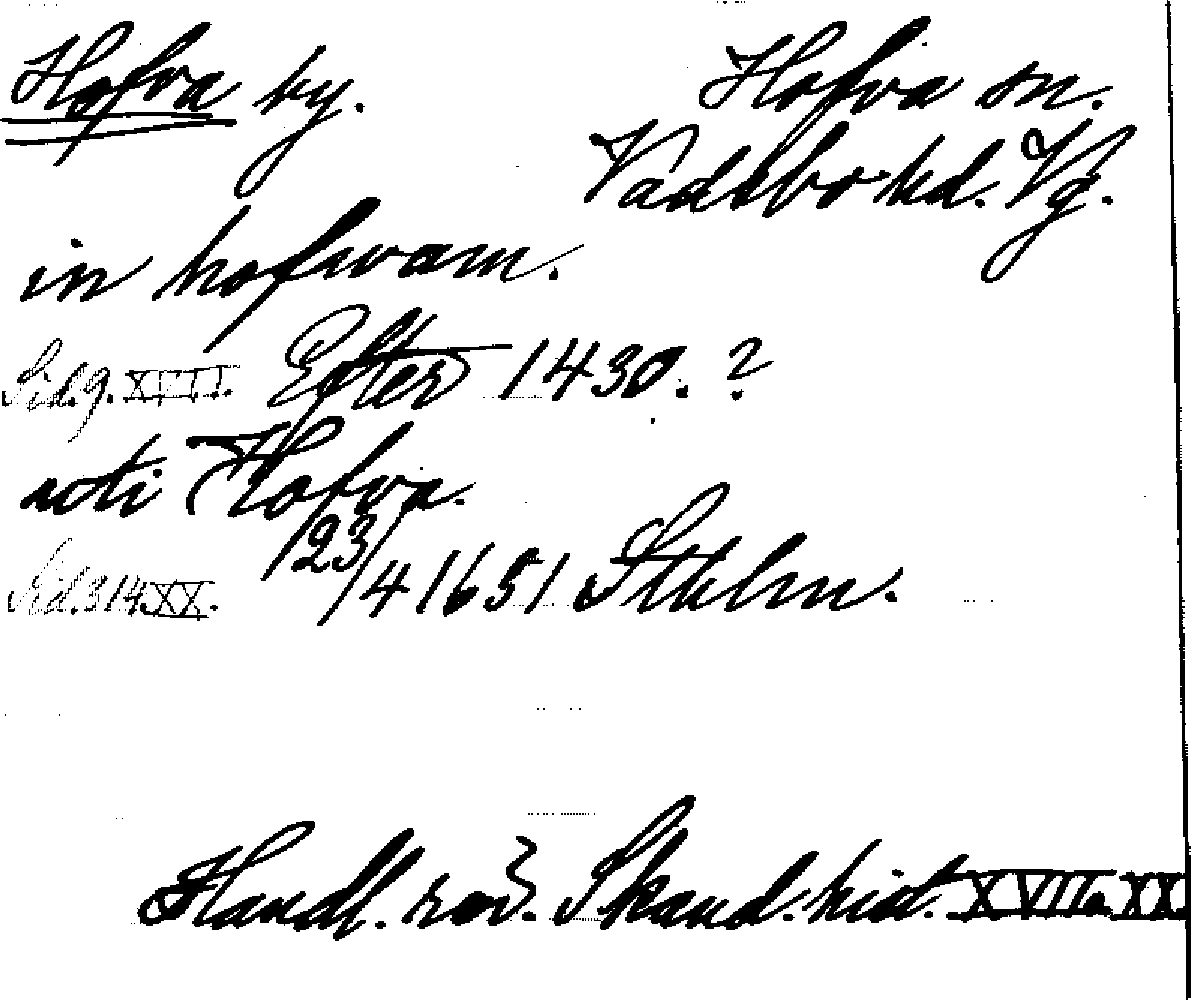 Hofva by. Hofva sn.
Vadsbo hd. Vg.
in hofwam.
Sid. 9. XVII. Efter 1430.?
uti Hofva.
Sid. 314 XX. 123/4 1651 Sthlm.
Handl. rör. Skand. hist. XVII o XX.